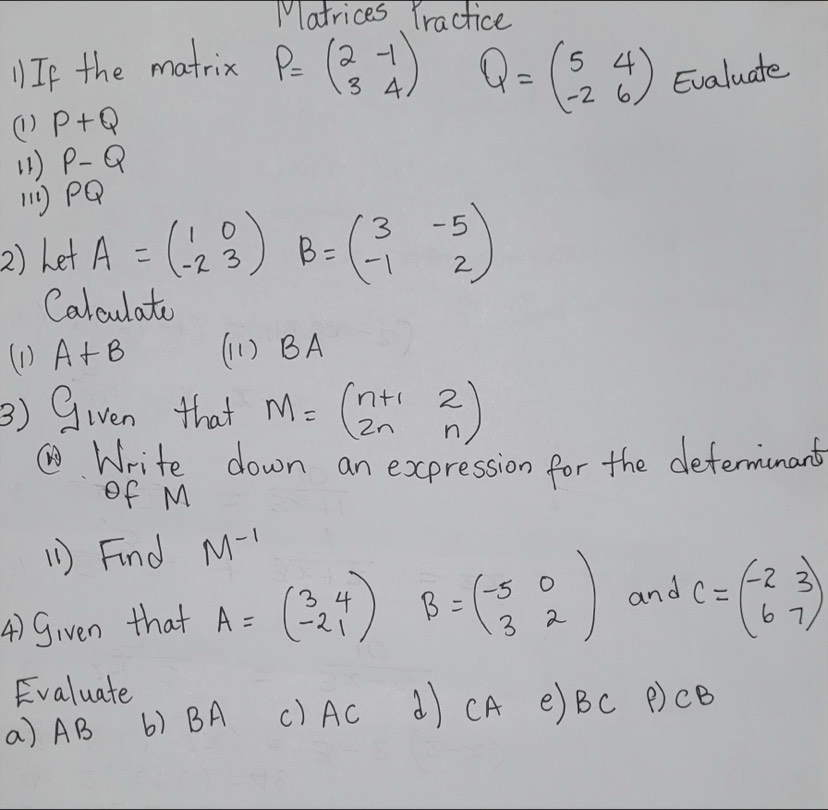 Matrices Practice
1) If the matrix P= (2 -1
3 4) Q = (5 4
-2 6) Evaluate
(i) P+Q
ii) P-Q
iii) PQ
2) Let A = (1 0
-2 3) B = (3 -5
-1 2)
Calculate
(i) A+B (ii) BA
3) Given that M = (n+1 2
2n n)
(i) Write down an expression for the determinant
of M
ii) Find M⁻¹
4) Given that A = (3 4
-2 1) B = (-5 0
3 2) and C = (-2 3
6 7)
Evaluate
a) AB b) BA c) AC d) CA e) BC f) CB